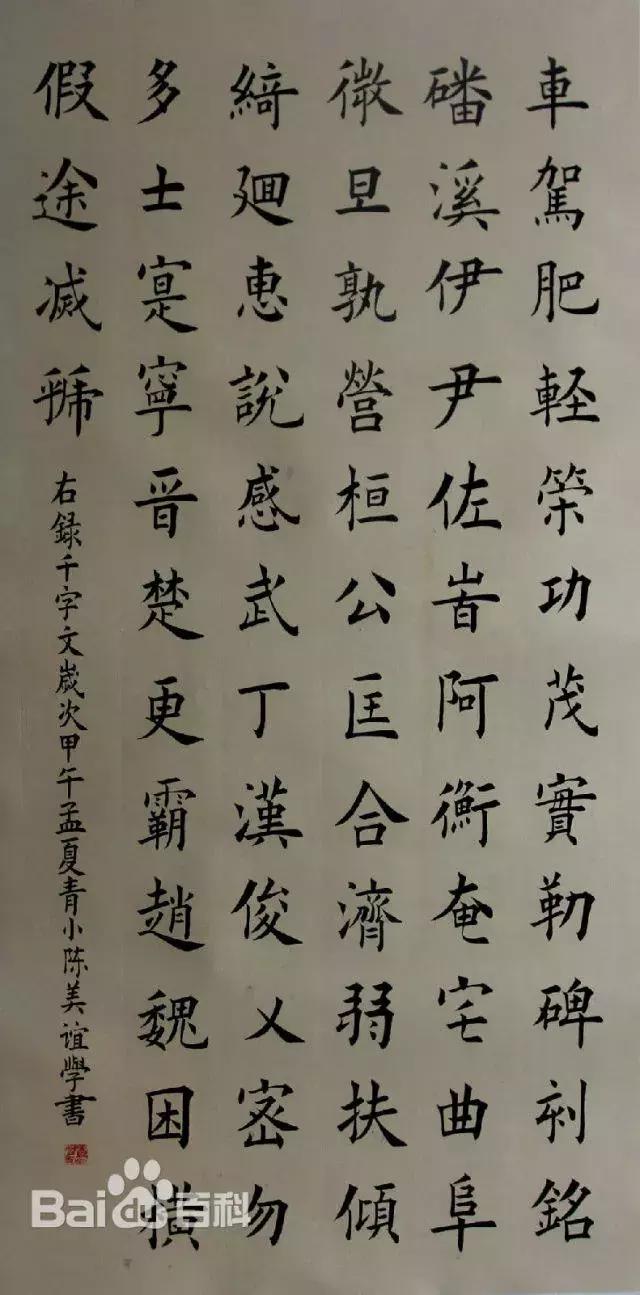 車駕肥軽榮功茂實勒碑刹銘
磻溪伊尹佐旹阿衡奄宅曲阜
微旦孰營桓公匡合濟弱扶傾
綺廻惠說感武丁漢俊乂密勿
多士寔寧晉楚更霸趙魏困橫
假途滅虢
右録千字文歲次甲午孟夏青小陈美誼學書
Baidu百科